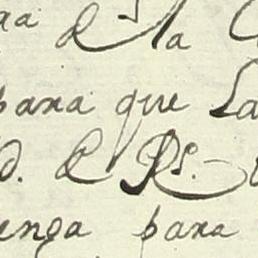 de la
para que La
d. de Rs.
ença para